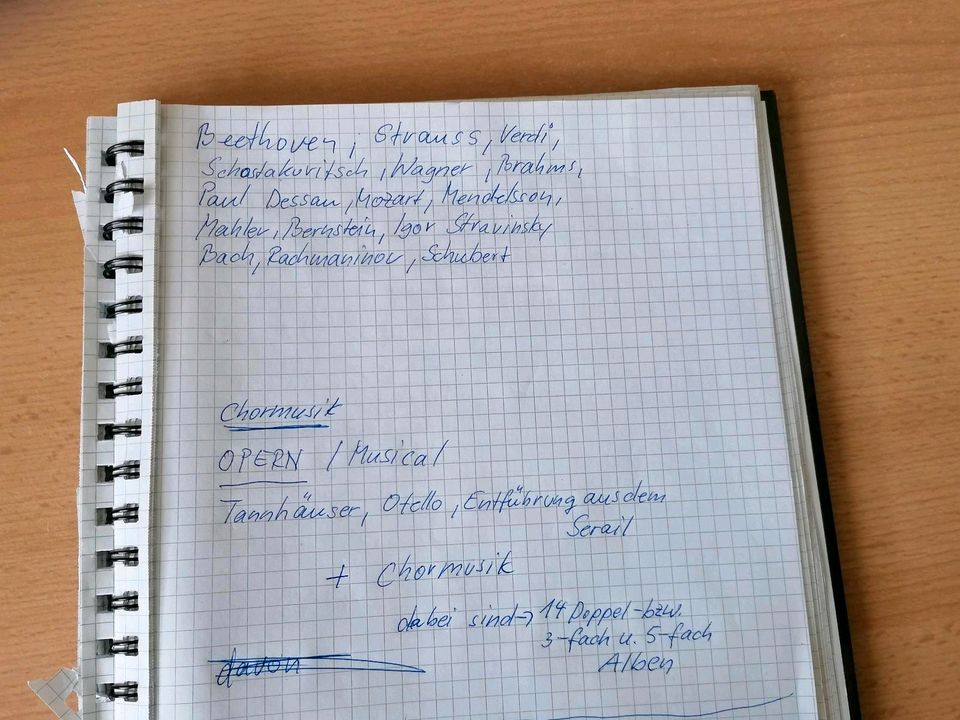 Beethoven, Strauss, Verdi,
Schostakovitsch, Wagner, Brahms,
Paul Dessau, Mozart, Mendelsson,
Mahler, Bernstein, Igor Stravinsky
Bach, Rachmaninov, Schubert
Chormusik
OPERN / Musical
Tannhäuser, Otello, Entführung aus dem
Serail
+ Chormusik
dabei sind → 14 Doppel- bzw.
3-fach u. 5-fach
Alben
davon